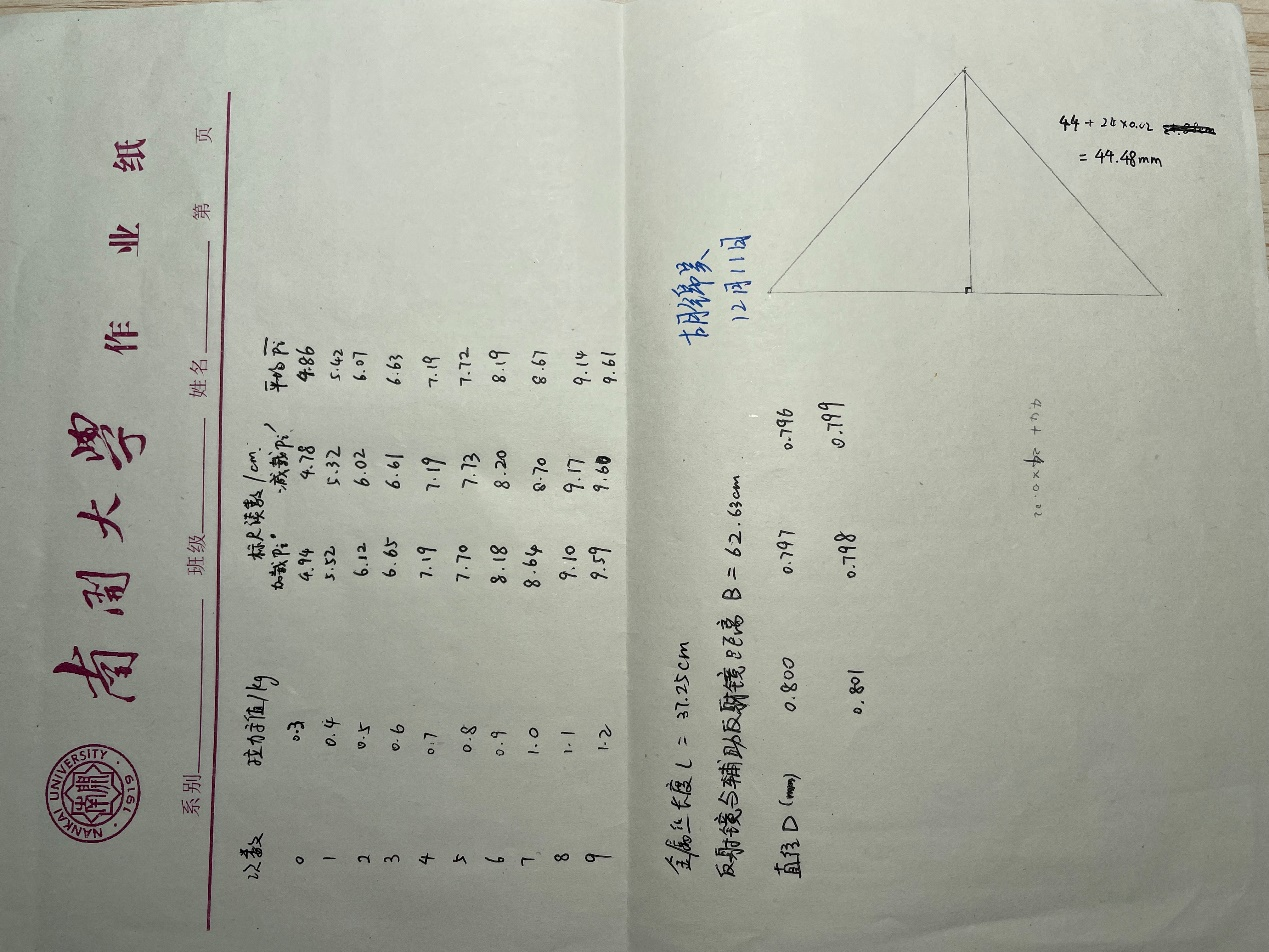 NANKAI UNIVERSITY
南開
1919
南開大學 作业纸
系别 班级 姓名 第 页
次数 拉力示值/kg 标尺读数/cm
加载Pi 减载Pi' 平均Pi
0 0.3 4.94 4.78 4.86
1 0.4 5.52 5.32 5.42
2 0.5 6.12 6.02 6.07
3 0.6 6.65 6.61 6.63
4 0.7 7.19 7.19 7.19
5 0.8 7.70 7.73 7.72
6 0.9 8.18 8.20 8.19
7 1.0 8.64 8.70 8.67
8 1.1 9.10 9.17 9.14
9 1.2 9.59 9.60 9.61
金属丝长度L = 37.25cm
反射镜与辅助反射镜距离 B = 62.63cm
12月11日
直径D(mm) 0.800 0.797 0.796
0.801 0.798 0.799
44 + 24×0.02
44 + 24×0.02
= 44.48mm